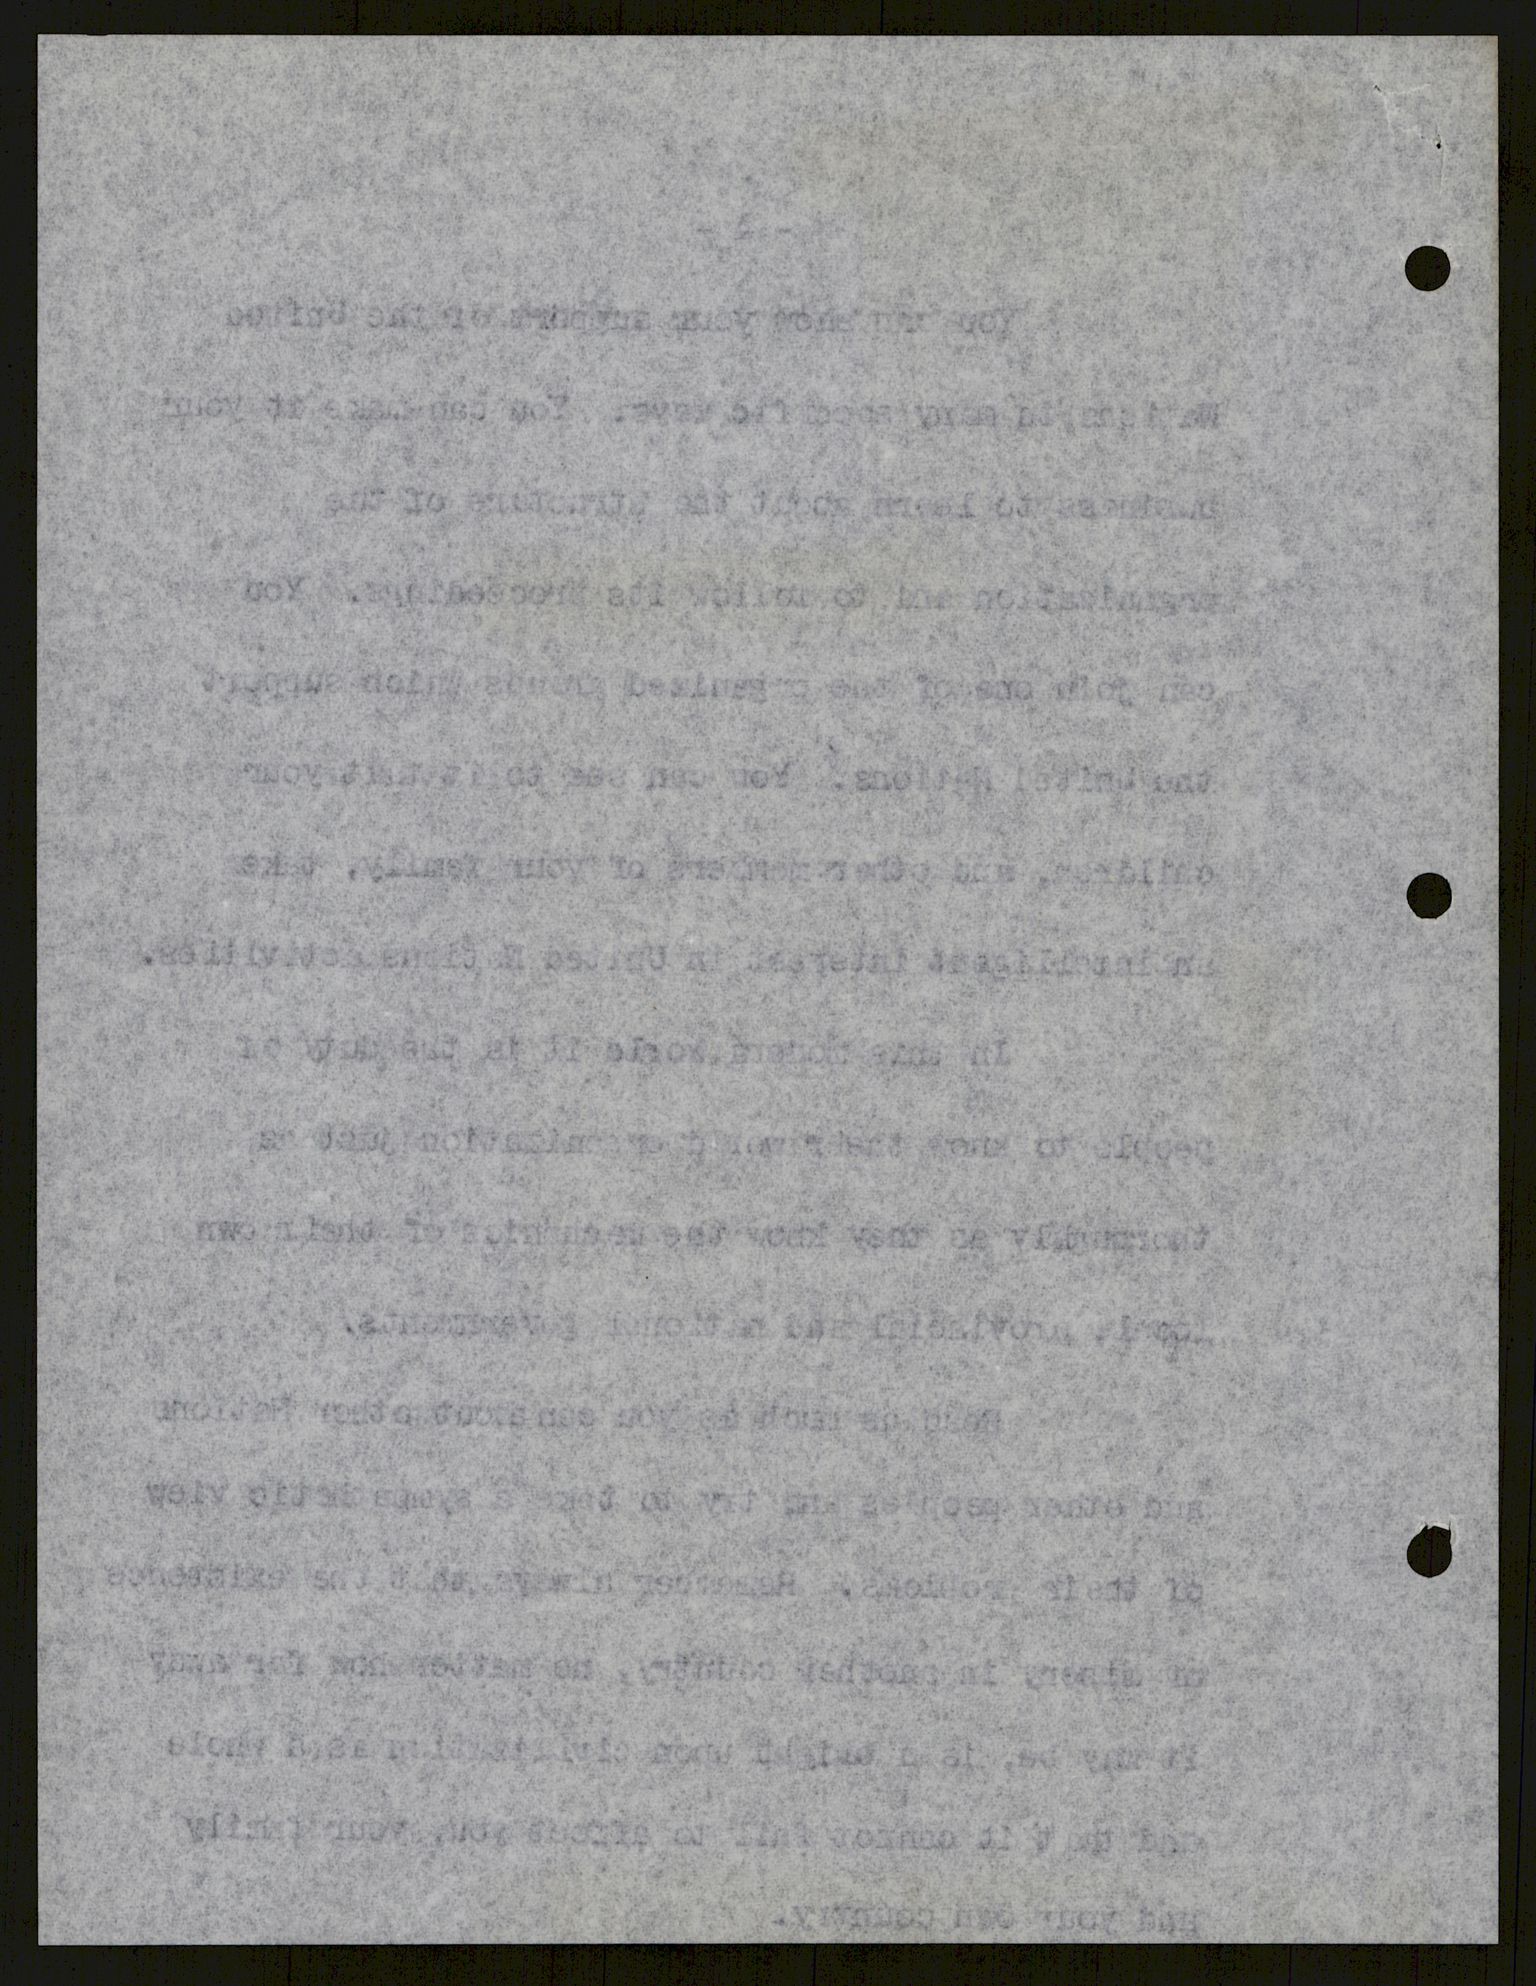 - 2 -
You can show your support of the United
Nations in many specific ways. You can make it your
business to learn about the structure of the
organization and to follow its proceedings. You
can join one of the organized groups which support
the United Nations. You can see to it that your
children, and other members of your family, take
an intelligent interest in United Nations activities.
In this modern world it is the duty of
people to know their world organization just as
thoroughly as they know the mechanics of their own
local, provincial and national governments.
Read as much as you can about other Nations
and other peoples and try to take a sympathetic view
of their problems. Remember always that the existence
of misery in another country, no matter how far away
it may be, is a blight upon civilization as a whole
and that it cannot fail to affect you, your family
and your own country.